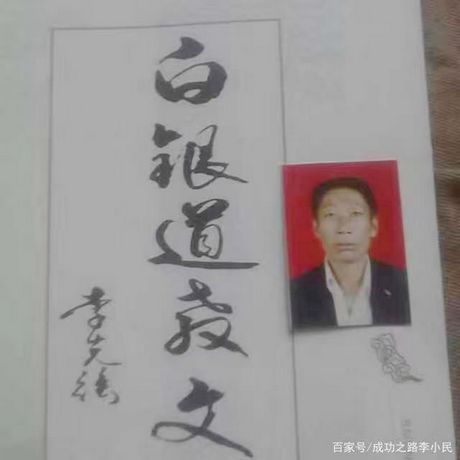 白銀道教文
李光福
百家号/成功之路李小民